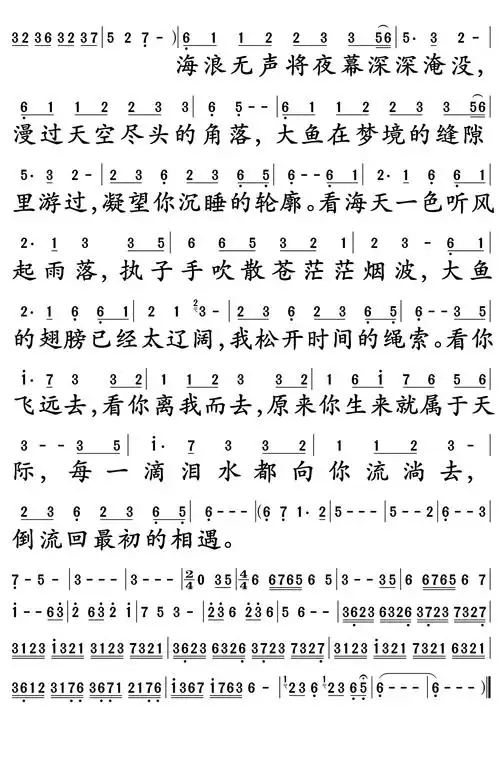 3236 3237 | 5 2 7 - ) | 6 1 1 2 2 3 3 56 | 5· 3 2 - |
海浪无声将夜幕深深淹没,
6 1 1 2 2 3 3 | 6 5 - - | 6 1 1 2 2 3 3 56 |
漫过天空尽头的角落, 大鱼在梦境的缝隙
5· 3 2 - | 2 3 6 2 3 6 5 | 6 - - 6 1 | 2· 1 6 6 1 |
里游过,凝望你沉睡的轮廓。看海天一色听风
2· 1 3 3 5 | 6 6 5 3 2 1 | 2 3 - 6 1 |
起雨落,执子手吹散苍茫茫烟波,大鱼
2· 1 6 6 1 | 2 1 3 - | 2 3 6 2 3 6 5 | 6 - - 3 5 |
的翅膀已经太辽阔,我松开时间的绳索。看你
i· 7 3 3 2 | 1 1 2 3 3 2 | 1 6 i 7 6 5 6 |
飞远去,看你离我而去,原来你生来就属于天
3 - - 3 5 | i· 7 3 3 2 | 1 1 2 3 - |
际, 每一滴泪水都向你流淌去,
2 3 6 2 3 6 5 | 6 - - - | (6 7 1· 2 | 5 - - - | 5 - - 2 | 6 - - 3 |
倒流回最初的相遇。
7 - 5 - | 3 - - - | 3 - - - | 2/4 0 35 | 4/4 6 6765 6 5 | 3 - - 35 | 6 6765 6 7 |
i - - 63 | 2 63 2 i | 7 5 3 - | 236 2366 5 | 5 - - - | 3623 6326 3723 7327 |
3123 i321 3123 7321 | 3623 6326 3723 7327 | 3123 i321 3123 6321 |
3612 3176 3671 2176 | i367 i763 6 - | 1236 1236 5 | 6 - - - | 6 - - -) ‖